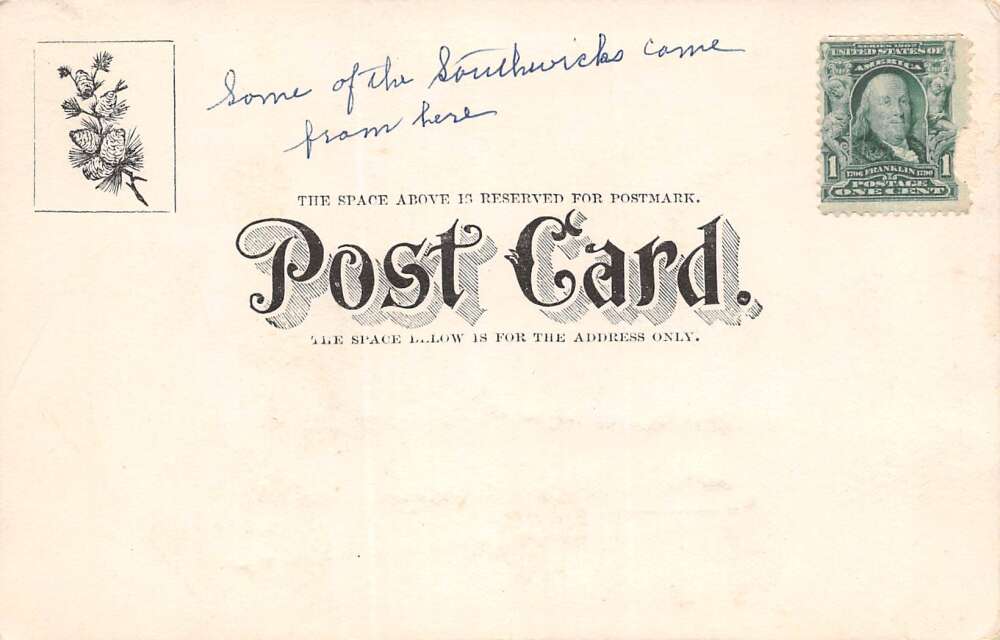 Some of the Southwicks come
from here
SERIES 1902
UNITED STATES OF
AMERICA
1 1
1706 FRANKLIN 1790
POSTAGE
ONE CENT
THE SPACE ABOVE IS RESERVED FOR POSTMARK.
Post Card.
THE SPACE BELOW IS FOR THE ADDRESS ONLY.